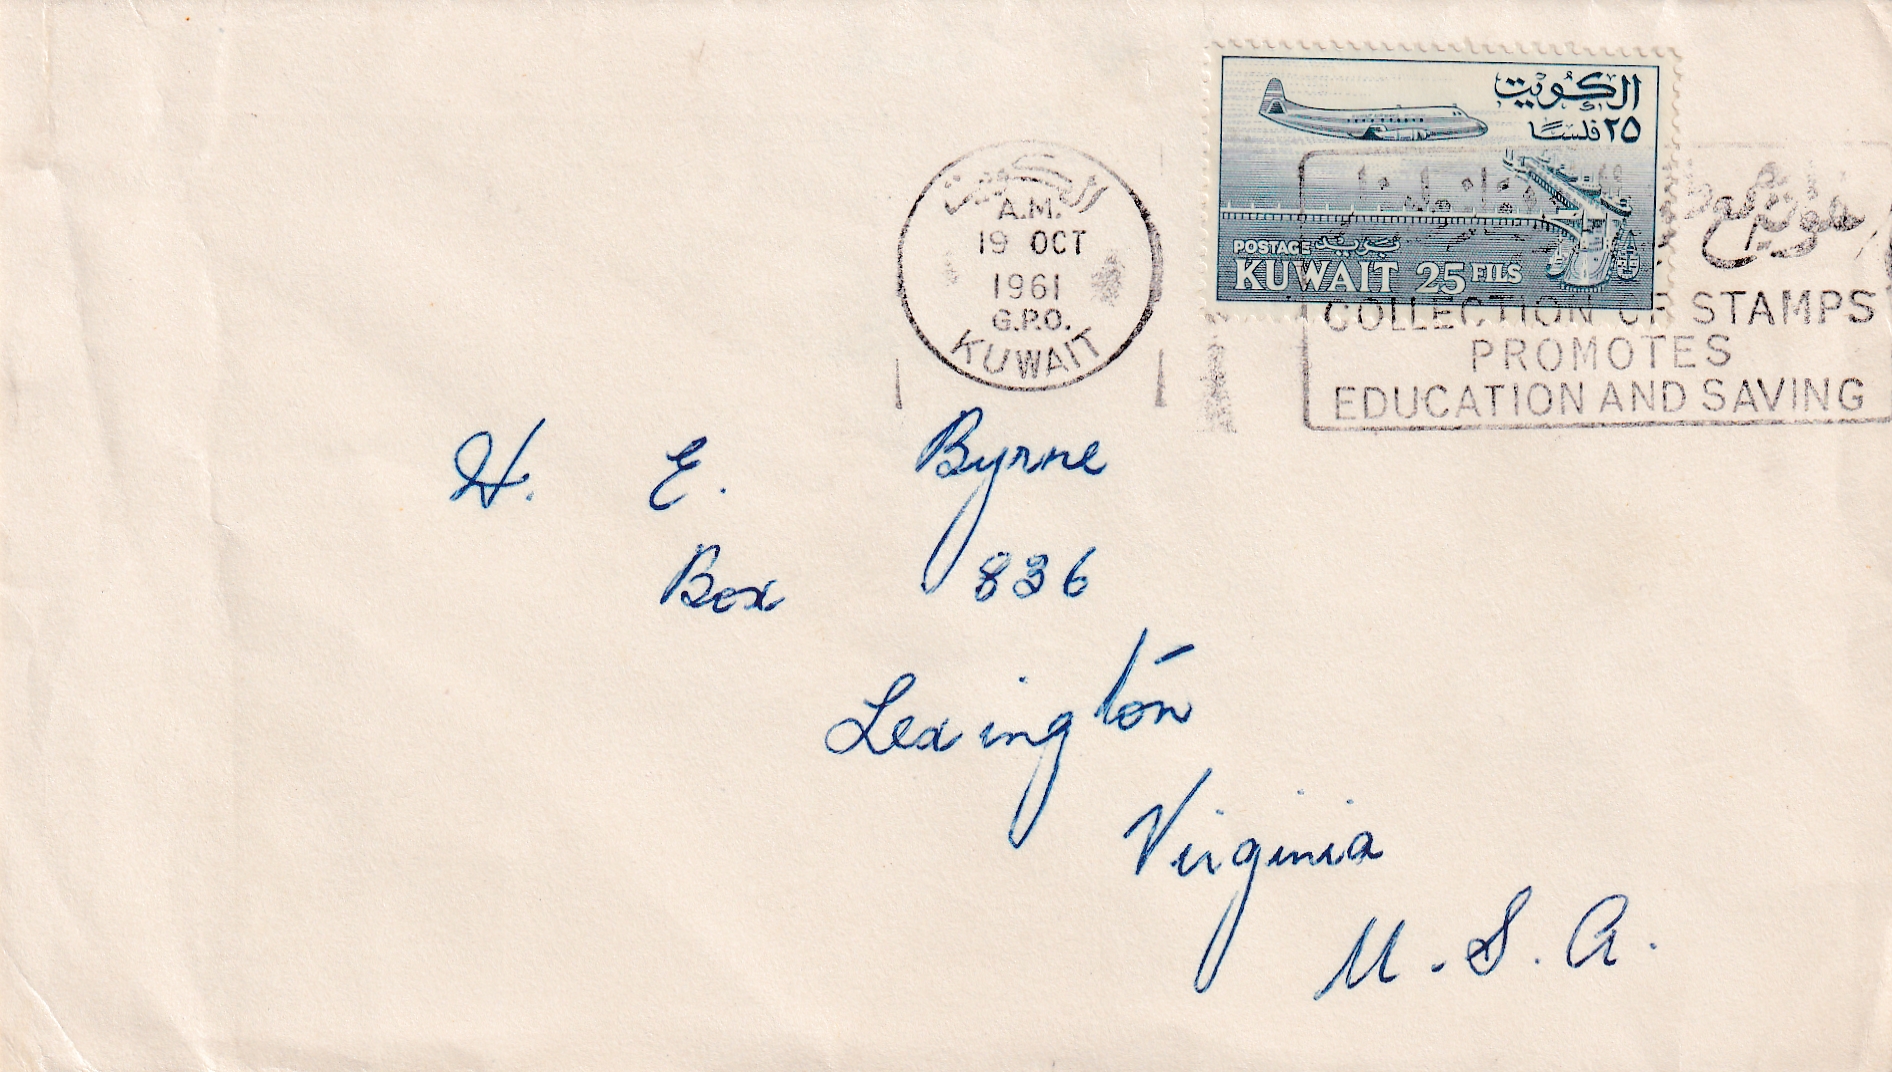 الكويت
٢٥ فلسًا
POSTAGE بريد
KUWAIT 25 FILS
الكويت
A.M.
19 OCT
1961
G.P.O.
KUWAIT
COLLECTION OF STAMPS
PROMOTES
EDUCATION AND SAVING
H. E. Byrne
Box 836
Lexington
Virginia
U.S.A.